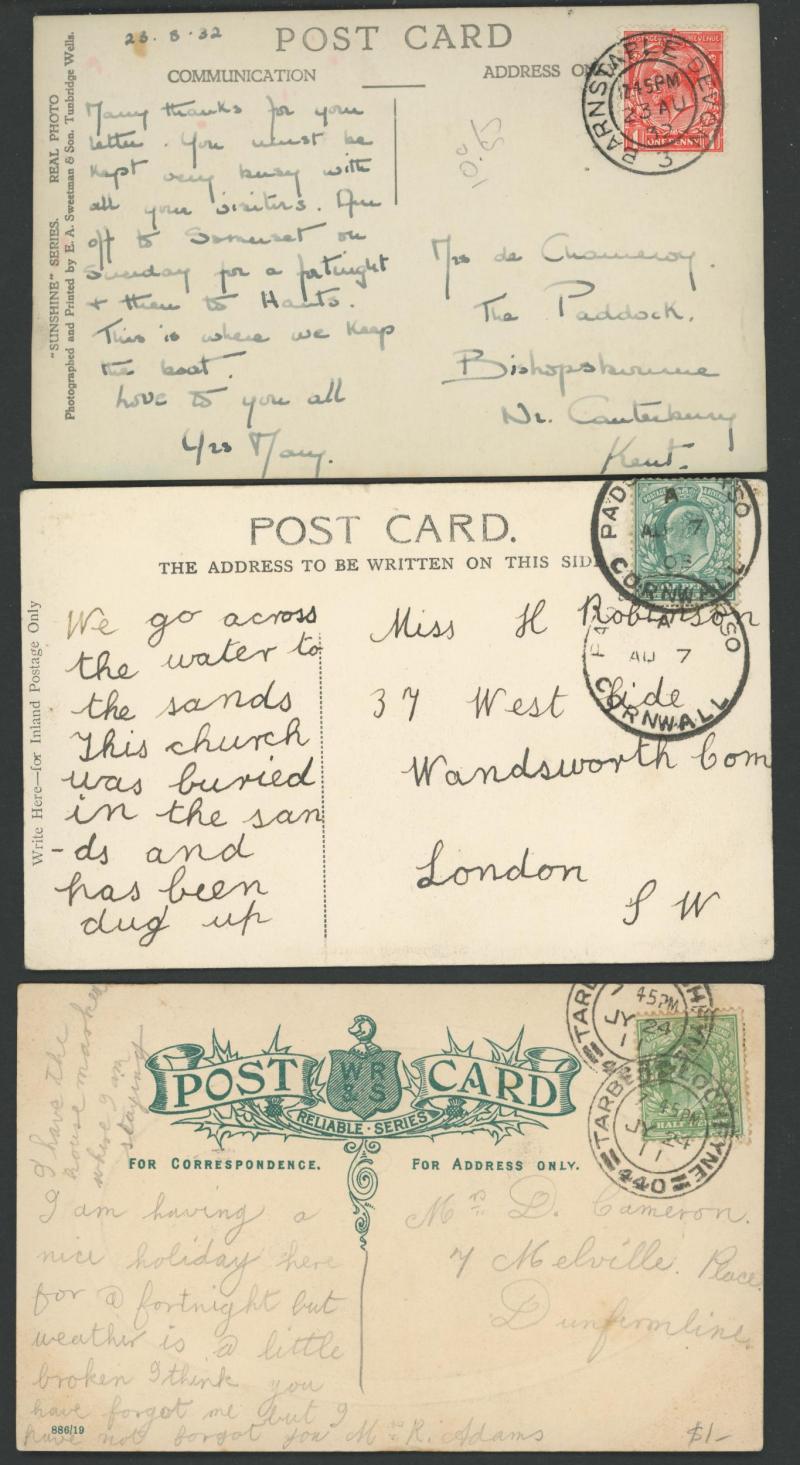 23.8.32
POST CARD
COMMUNICATION
ADDRESS ON
"SUNSHINE" SERIES. REAL PHOTO
Photographed and Printed by E. A. Sweetman & Son. Tunbridge Wells.
BARNSTAPLE DEVON
12 45 PM
23 AU
32
3
ONE PENNY
Many thanks for your
letter. You must be
kept very busy with
all your visitors. Am
off to Somerset on
Sunday for a fortnight
+ then to Hants.
This is where we keep
the boat.
Love to you all
Yrs Mary.
Mrs de Chameroy.
The Paddock.
Bishopsbourne
Nr. Canterbury
Kent.
POST CARD.
THE ADDRESS TO BE WRITTEN ON THIS SIDE
Write Here—for Inland Postage Only
A
AU 7
CORNWALL
A
AU 7
CORNWALL
We go across
the water to
the sands
This church
was buried
in the san
-ds and
has been
dug up
Miss H Robinson
37 West Side
Wandsworth Com
London
S W
I have the
house marked
where I am
staying
POST CARD
WR
&S
RELIABLE SERIES
FOR CORRESPONDENCE.
FOR ADDRESS ONLY.
45PM
JY 24
TARBERT LOCHFYNE
45PM
JY 24
11
440
HALF
I am having a
nice holiday here
for a fortnight but
weather is a little
broken I think you
have forgot me but I
have not forgot you Mrs R. Adams
Mrs D. Cameron.
7 Melville Place
Dunfermline.
886/19
$1-